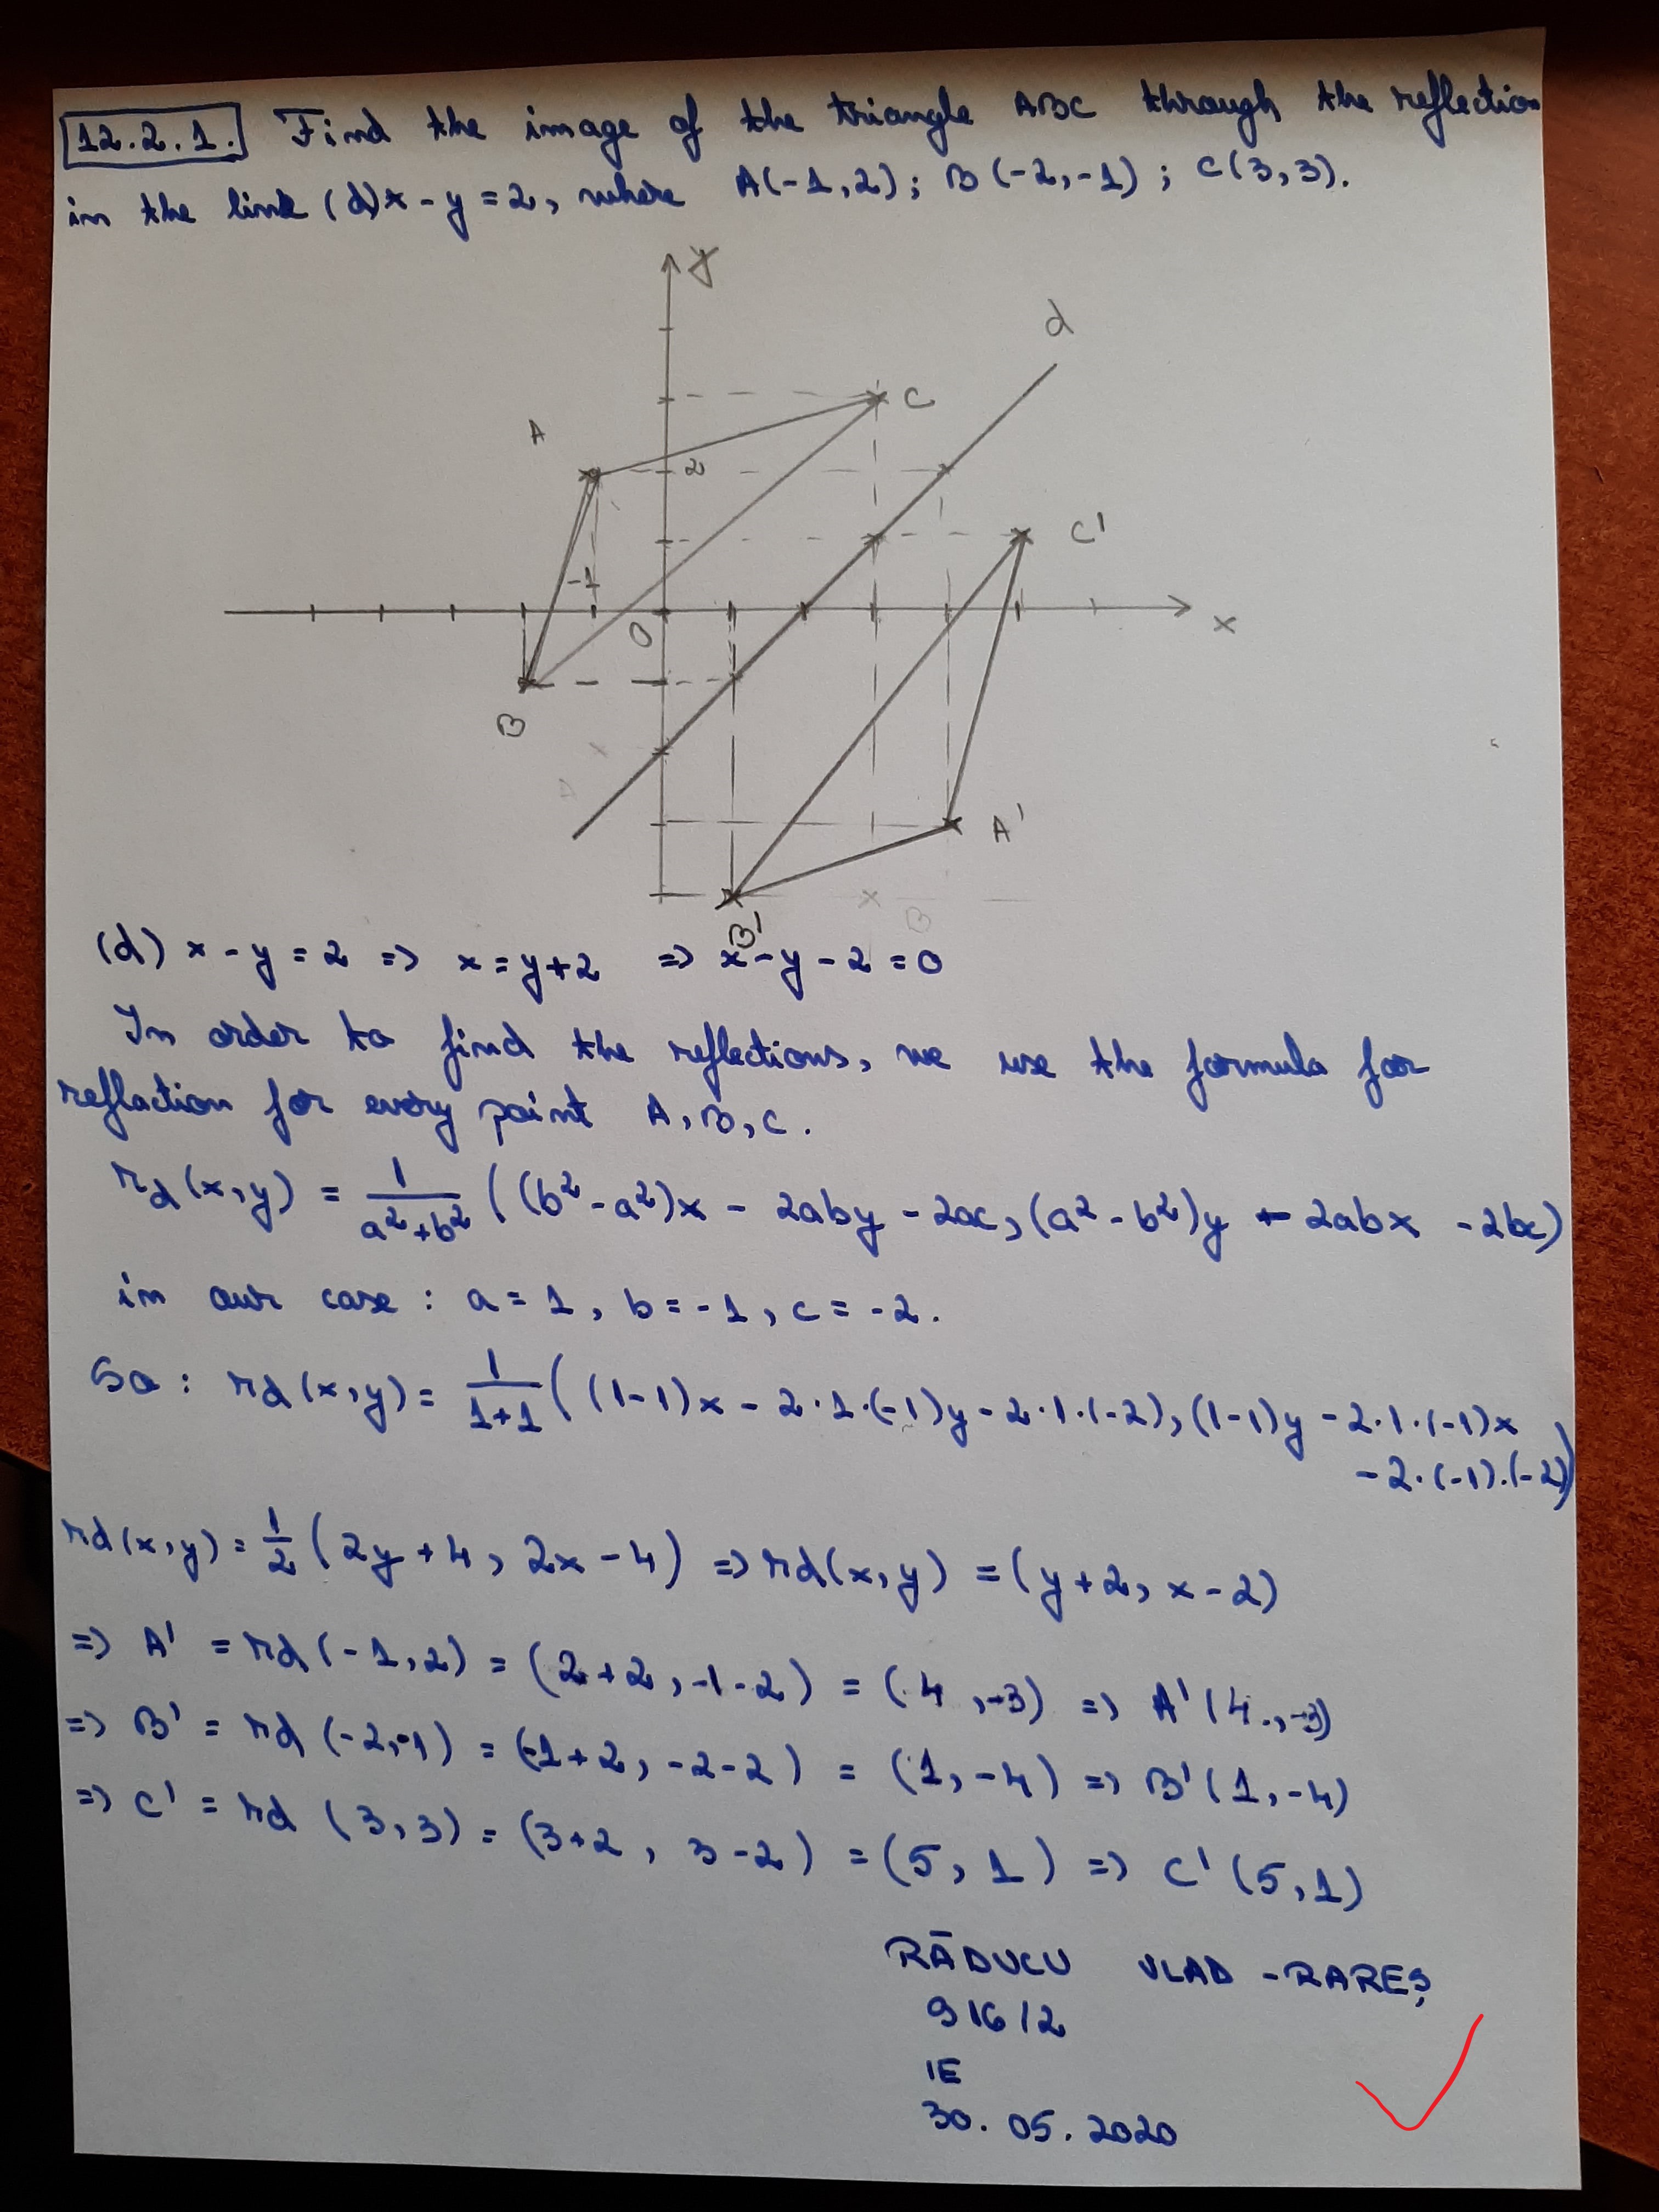 12.2.1. Find the image of the triangle ABC through the reflection
in the line (d) x - y = 2, where A(-1,2); B(-2,-1); C(3,3).
y
d
C
A
2
C'
-1
O
x
B
A
A'
B
B'
(d) x - y = 2 => x = y+2 => x - y - 2 = 0
In order to find the reflections, we use the formula for
reflection for every point A, B, C.
rd(x,y) = 1/(a²+b²) ((b²-a²)x - 2aby - 2ac, (a²-b²)y - 2abx - 2bc)
in our case: a = 1, b = -1, c = -2.
So: rd(x,y) = 1/(1+1) ((1-1)x - 2·1·(-1)y - 2·1·(-2), (1-1)y - 2·1·(-1)x
- 2·(-1)·(-2))
rd(x,y) = 1/2 (2y+4, 2x-4) => rd(x,y) = (y+2, x-2)
=> A' = rd(-1,2) = (2+2, -1-2) = (4,-3) => A'(4,-3)
=> B' = rd(-2,-1) = (-1+2, -2-2) = (1,-4) => B'(1,-4)
=> C' = rd(3,3) = (3+2, 3-2) = (5,1) => C'(5,1)
RĂDUCU VLAD-RAREȘ
916/2
IE
30.05.2020